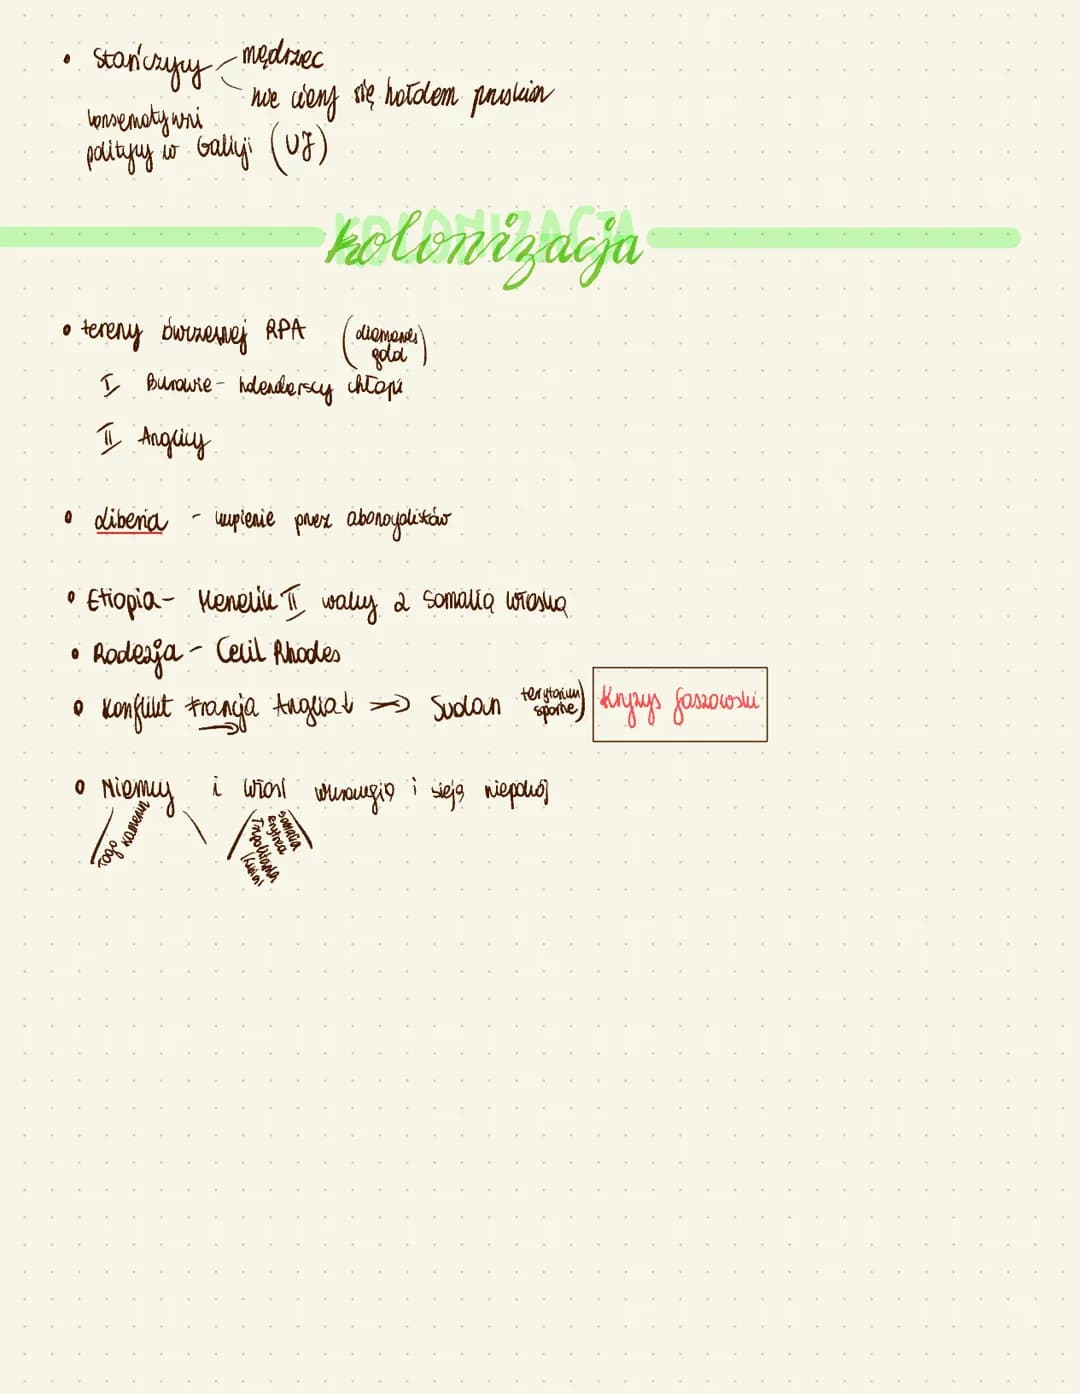 • Stańczycy - mędrzec
nie cieszy się hołdem pruskim
konserwatywni
politycy w Galicji (UJ)
KOLONIZACJA
kolonizacja
• tereny ówczesnej RPA (diamenty gold)
I Burowie - holenderscy chłopi
II Anglicy
• Liberia - kupienie przez abonoyalistów
• Etiopia - Menelik II walczy z Somalią włoską
• Rodezja - Cecil Rhodes
• Konflikt Francja Anglia ↓ → Sudan terytorium sporne) Kryzys faszowski
• Niemcy i Włosi wkraczają i sieją niepokój
Togo Kamerun
Somalia
Erytrea
Trypolitania